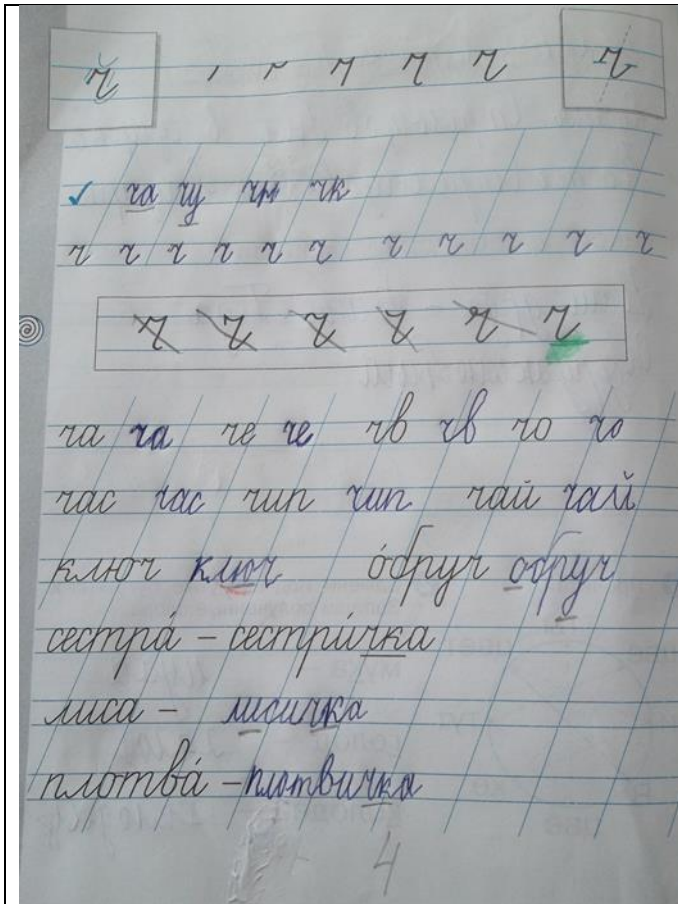 ч ч ч ч ч
ча чу чн чк
ч ч ч ч ч ч ч ч ч ч ч
ч ч ч ч ч ч
ча ча че че чв чв чо чо
час час чип чип чай чай
ключ ключ о́бруч обруч
сестра́ – сестри́чка
лиса – лисичка
плотва́ – плотвичка
4